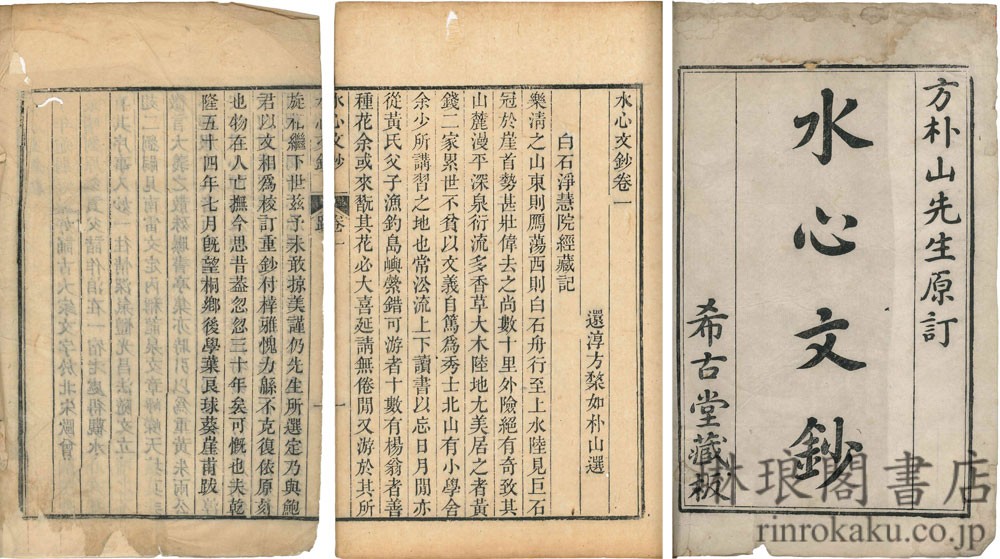 方朴山先生原訂
水心文鈔
希古堂藏板
水心文鈔卷一
還淳方楘如朴山選
白石淨慧院經藏記
樂清之山東則鴈蕩西則白石舟行至上水陸見巨石
冠於崖首勢甚壯偉去之尚數十里外險絕有奇致其
山麓漫平深泉衍流多香草大木陸地尤美居之者黃
錢二家累世不貧以文義自篤爲秀士北山有小學舍
余少所講習之地也常沿流上下讀書以忘日月閒亦
從黃氏父子漁釣島嶼縈錯可游者十數有楊翁者善
種花余或來翫其花必大喜延請無倦閒又游於其所
水心文鈔
卷一
一
旋相繼下世茲予未敢掠美謹仍先生所選定乃與鮑
君以文相爲校訂重鈔付梓雖愧力緜不克復依原刻
也物在人亡撫今思昔葢忽忽三十年矣可慨也夫乾
隆五十四年七月旣望桐鄉後學葉良球葵崖甫跋
水心文鈔
跋
一
琳琅閣書店
rinrokaku.co.jp